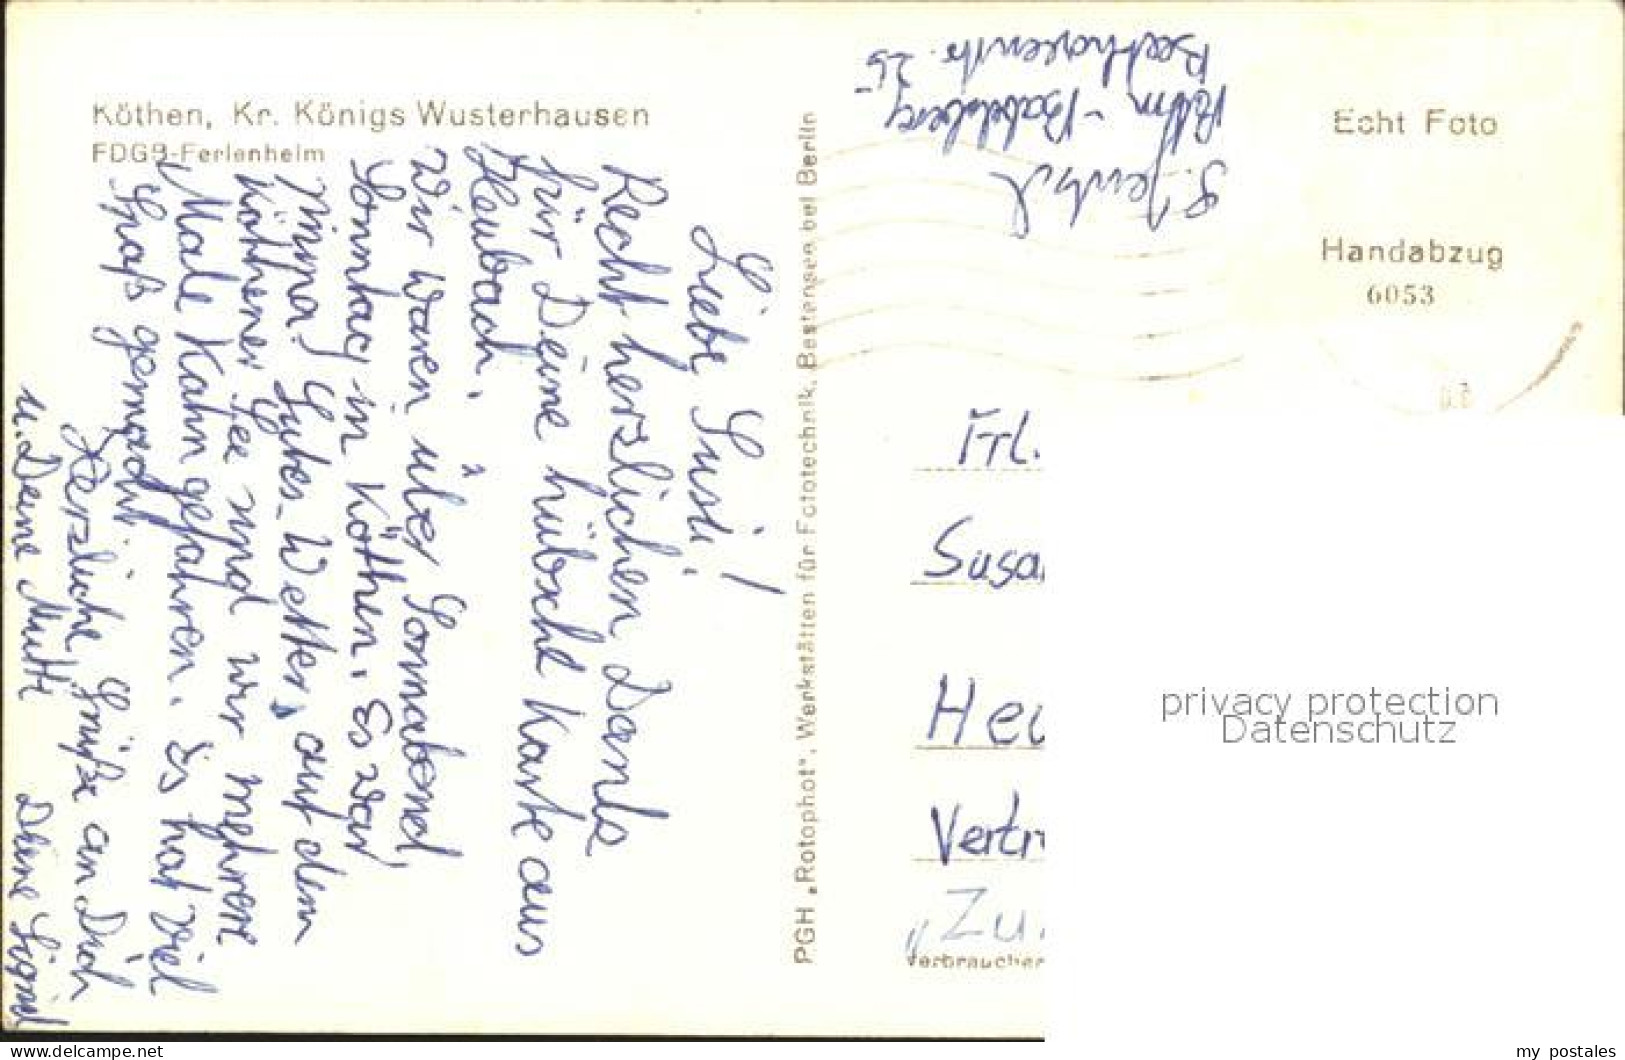 Köthen, Kr. Königs Wusterhausen
FDGB-Ferienheim
Liebe Susi!
Recht herzlichen Dank
für Deine hübsche Karte aus
Heubach.
Wir waren über Sonnabend,
Sonntag in Köthen. Es war
prima! Gutes Wetter, auf dem
Köthener See sind wir mehrere
Male Kahn gefahren. Es hat viel
Spaß gemacht.
Herzliche Grüße an Dich
u. Deine Mutti Deine Sigrid
PGH „Rotophot", Werkstätten für Fototechnik, Bestensee bei Berlin
Babelsberg
Beethovenstr. 25
Echt Foto
Handabzug
6053
Frl.
Susa
Heu
Vertr
"Zu
Verbraucher
privacy protection
Datenschutz
www.delcampe.net
my_postales